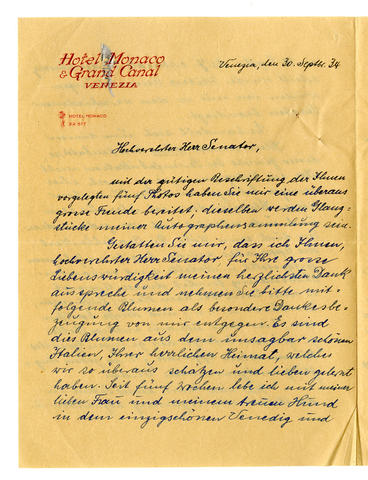 Hotel Monaco
& Grand Canal
VENEZIA
HOTEL MONACO
Venezia, den 30. Septbr. 34
Hochverehrter Herr Senator,
mit der gütigen Beschriftung der Ihnen
vorgelegten fünf Photos haben Sie mir eine überaus
grosse Freude bereitet, dieselben werden Glanz-
stücke meiner Autographensammlung sein.
Gestatten Sie mir, dass ich Ihnen,
hochverehrter Herr Senator, für Ihre grosse
Liebenswürdigkeit meinen herzlichsten Dank
ausspreche und nehmen Sie bitte mit-
folgende Blumen als besondere Dankesbe-
zeugung von mir entgegen. Es sind
dies Blumen aus dem unsagbar schönen
Italien, Ihrer herrlichen Heimat, welches
wir so überaus schätzen und lieben gelernt
haben. Seit fünf Wochen lebe ich mit meiner
lieben Frau und meinem treuen Hund
in dem einzigschönen Venedig und